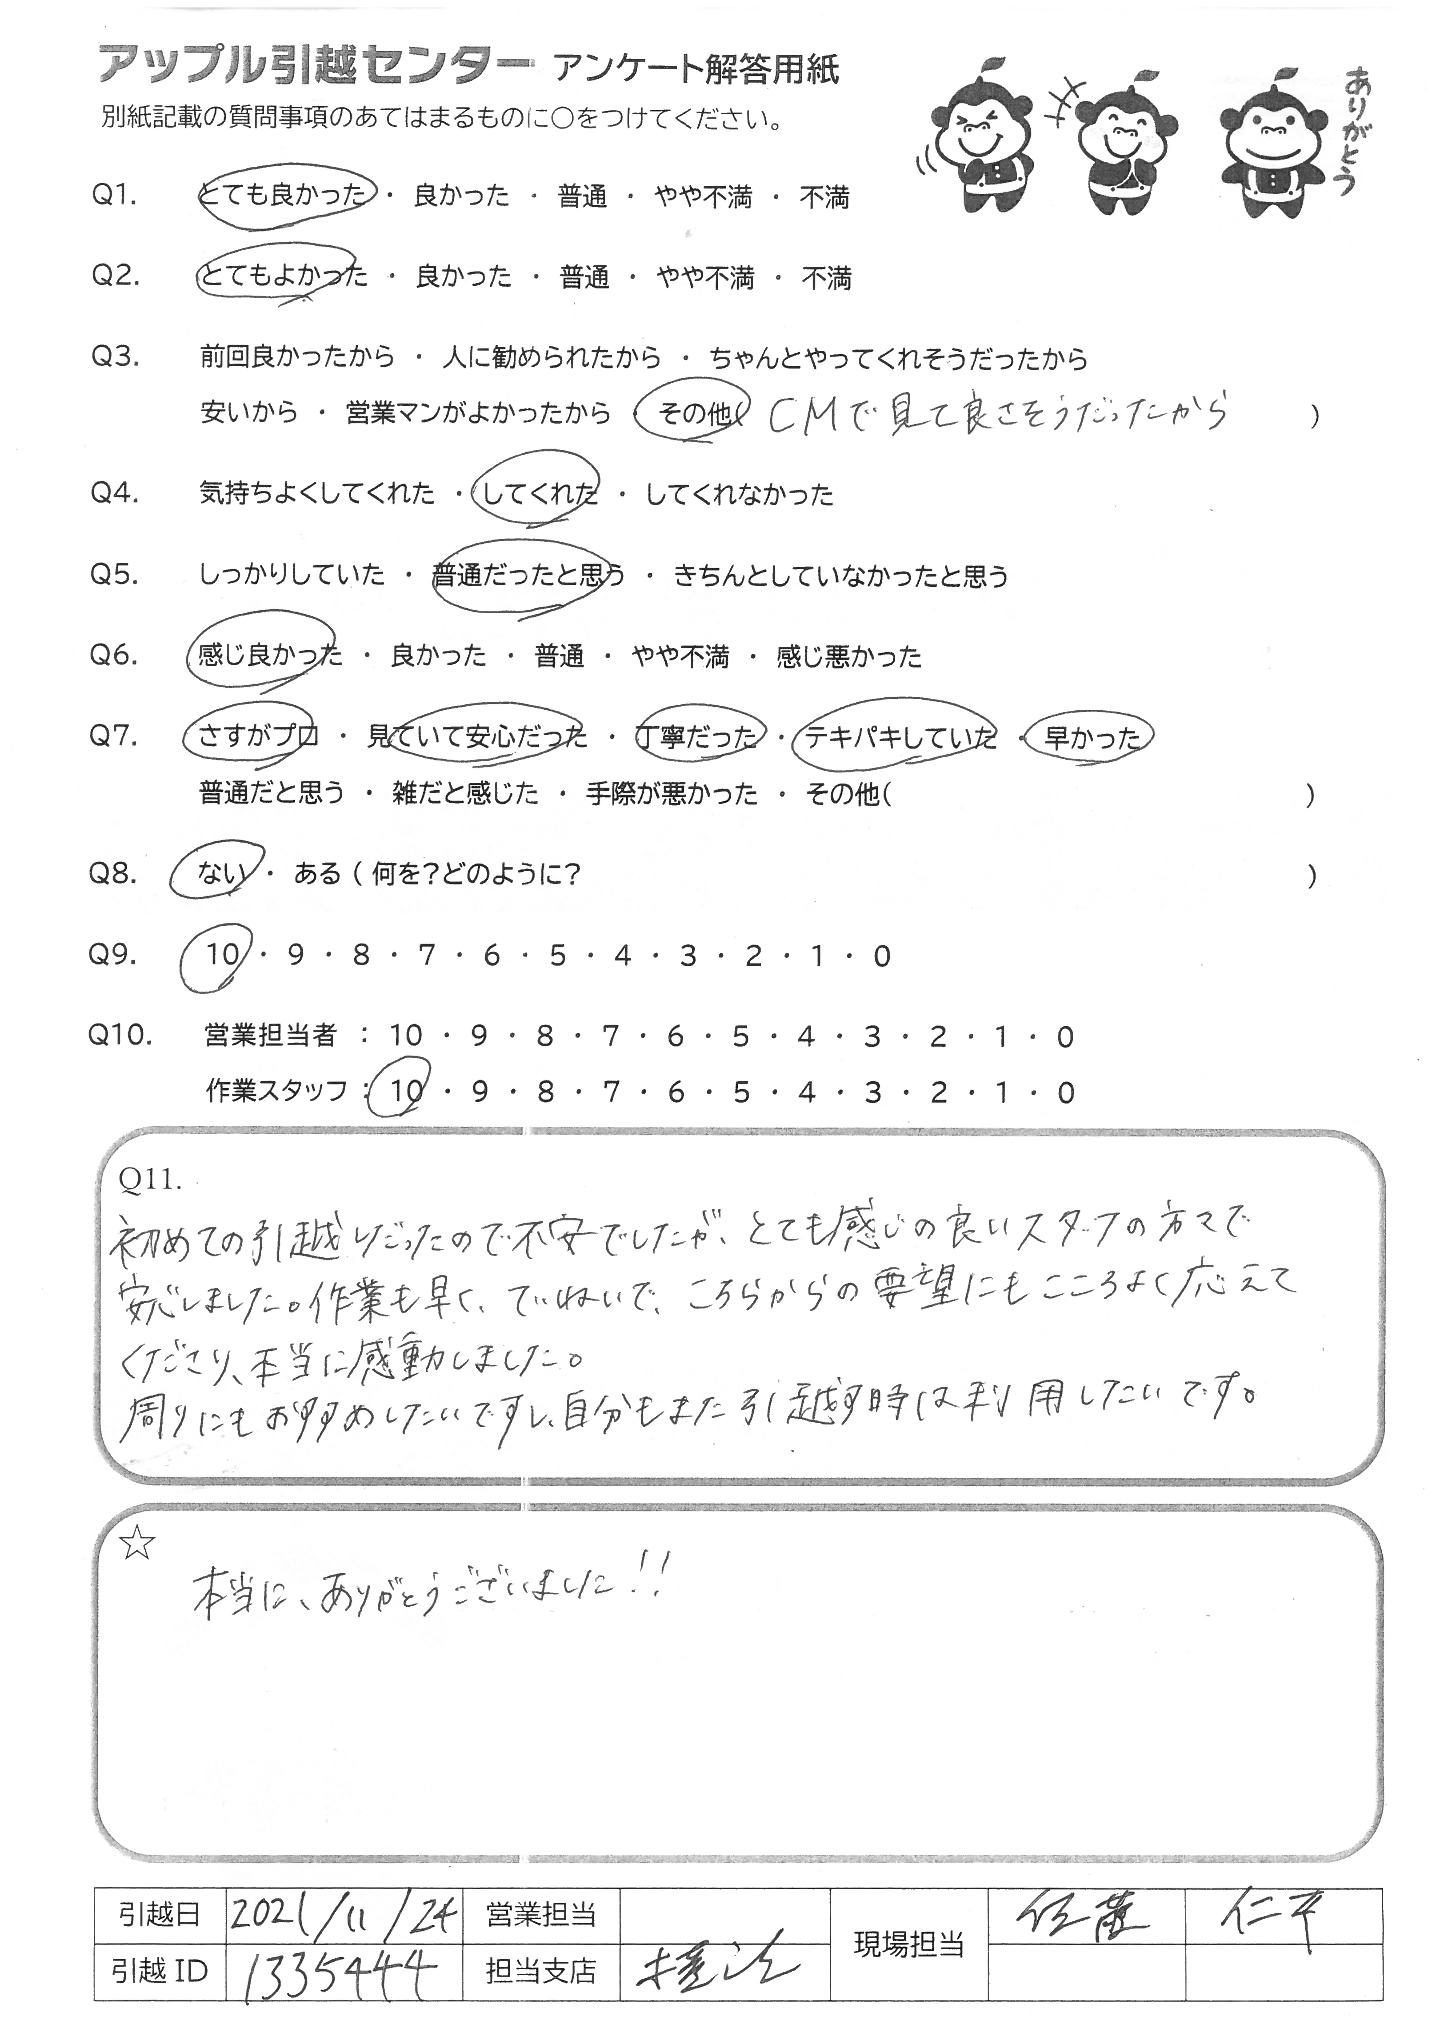 アップル引越センター アンケート解答用紙
別紙記載の質問事項のあてはまるものに○をつけてください。
ありがとう
Q1. とても良かった ・ 良かった ・ 普通 ・ やや不満 ・ 不満
Q2. とてもよかった ・ 良かった ・ 普通 ・ やや不満 ・ 不満
Q3. 前回良かったから ・ 人に勧められたから ・ ちゃんとやってくれそうだったから
安いから ・ 営業マンがよかったから ・ その他( CMで見て良さそうだったから )
Q4. 気持ちよくしてくれた ・ してくれた ・ してくれなかった
Q5. しっかりしていた ・ 普通だったと思う ・ きちんとしていなかったと思う
Q6. 感じ良かった ・ 良かった ・ 普通 ・ やや不満 ・ 感じ悪かった
Q7. さすがプロ ・ 見ていて安心だった ・ 丁寧だった ・ テキパキしていた ・ 早かった
普通だと思う ・ 雑だと感じた ・ 手際が悪かった ・ その他( )
Q8. ない ・ ある ( 何を?どのように? )
Q9. 10 ・ 9 ・ 8 ・ 7 ・ 6 ・ 5 ・ 4 ・ 3 ・ 2 ・ 1 ・ 0
Q10. 営業担当者 : 10 ・ 9 ・ 8 ・ 7 ・ 6 ・ 5 ・ 4 ・ 3 ・ 2 ・ 1 ・ 0
作業スタッフ : 10 ・ 9 ・ 8 ・ 7 ・ 6 ・ 5 ・ 4 ・ 3 ・ 2 ・ 1 ・ 0
Q11.
初めての引越しだったので不安でしたが、とても感じの良いスタッフの方々で
安心しました。作業も早く、ていねいで、こちらからの要望にもこころよく応えて
くださり、本当に感動しました。
周りにもおすすめしたいですし、自分もまた引越す時は利用したいです。
☆
本当に、ありがとうございました!!
引越日 2021/11/24 営業担当 現場担当 佐藤 仁平
引越ID 1335444 担当支店